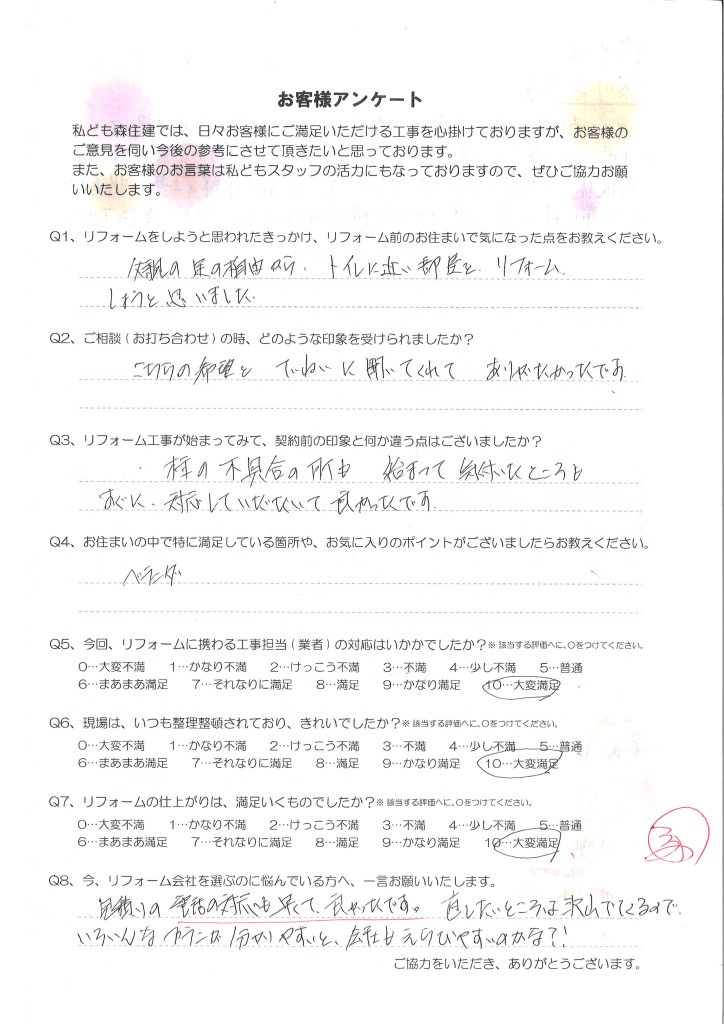 お客様アンケート
私ども森住建では、日々お客様にご満足いただける工事を心掛けておりますが、お客様の
ご意見を伺い今後の参考にさせて頂きたいと思っております。
また、お客様のお言葉は私どもスタッフの活力にもなっておりますので、ぜひご協力お願
いいたします。
Q1、リフォームをしようと思われたきっかけ、リフォーム前のお住まいで気になった点をお教えください。
の足の から、トイレに近い部屋を リフォーム
しようと思いました
Q2、ご相談(お打ち合わせ)の時、どのような印象を受けられましたか?
こちらの希望を ていねいに聞いてくれて ありがたかったです
Q3、リフォーム工事が始まってみて、契約前の印象と何か違う点はございましたか?
・柱の不具合の所も 始まって気付いたところも
すぐに、対応していただいて良かったです
Q4、お住まいの中で特に満足している箇所や、お気に入りのポイントがございましたらお教えください。
ベランダ
Q5、今回、リフォームに携わる工事担当(業者)の対応はいかかでしたか?※該当する評価へに、○をつけてください。
0…大変不満 1…かなり不満 2…けっこう不満 3…不満 4…少し不満 5…普通
6…まあまあ満足 7…それなりに満足 8…満足 9…かなり満足 10…大変満足
Q6、現場は、いつも整理整頓されており、きれいでしたか?※該当する評価へに、○をつけてください。
0…大変不満 1…かなり不満 2…けっこう不満 3…不満 4…少し不満 5…普通
6…まあまあ満足 7…それなりに満足 8…満足 9…かなり満足 10…大変満足
Q7、リフォームの仕上がりは、満足いくものでしたか?※該当する評価へに、○をつけてください。
0…大変不満 1…かなり不満 2…けっこう不満 3…不満 4…少し不満 5…普通
6…まあまあ満足 7…それなりに満足 8…満足 9…かなり満足 10…大変満足
Q8、今、リフォーム会社を選ぶのに悩んでいる方へ、一言お願いいたします。
見積りの電話の対応も早くて、良かったです。直したいところは沢山でてくるので、
いろいろなプランが分かりやすいと、会社もえらびやすいのかな?!
ご協力をいただき、ありがとうございます。